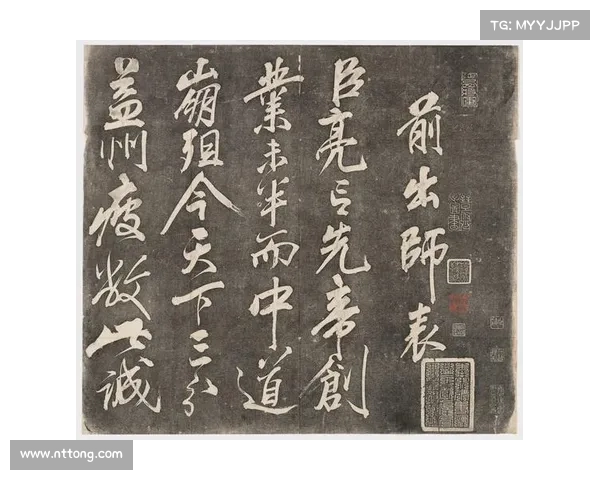 TG: MYYJJPP
前出師表
臣亮言先帝創
業未半而中道
崩殂今天下三分
益州疲敝此誠
www.nttong.com